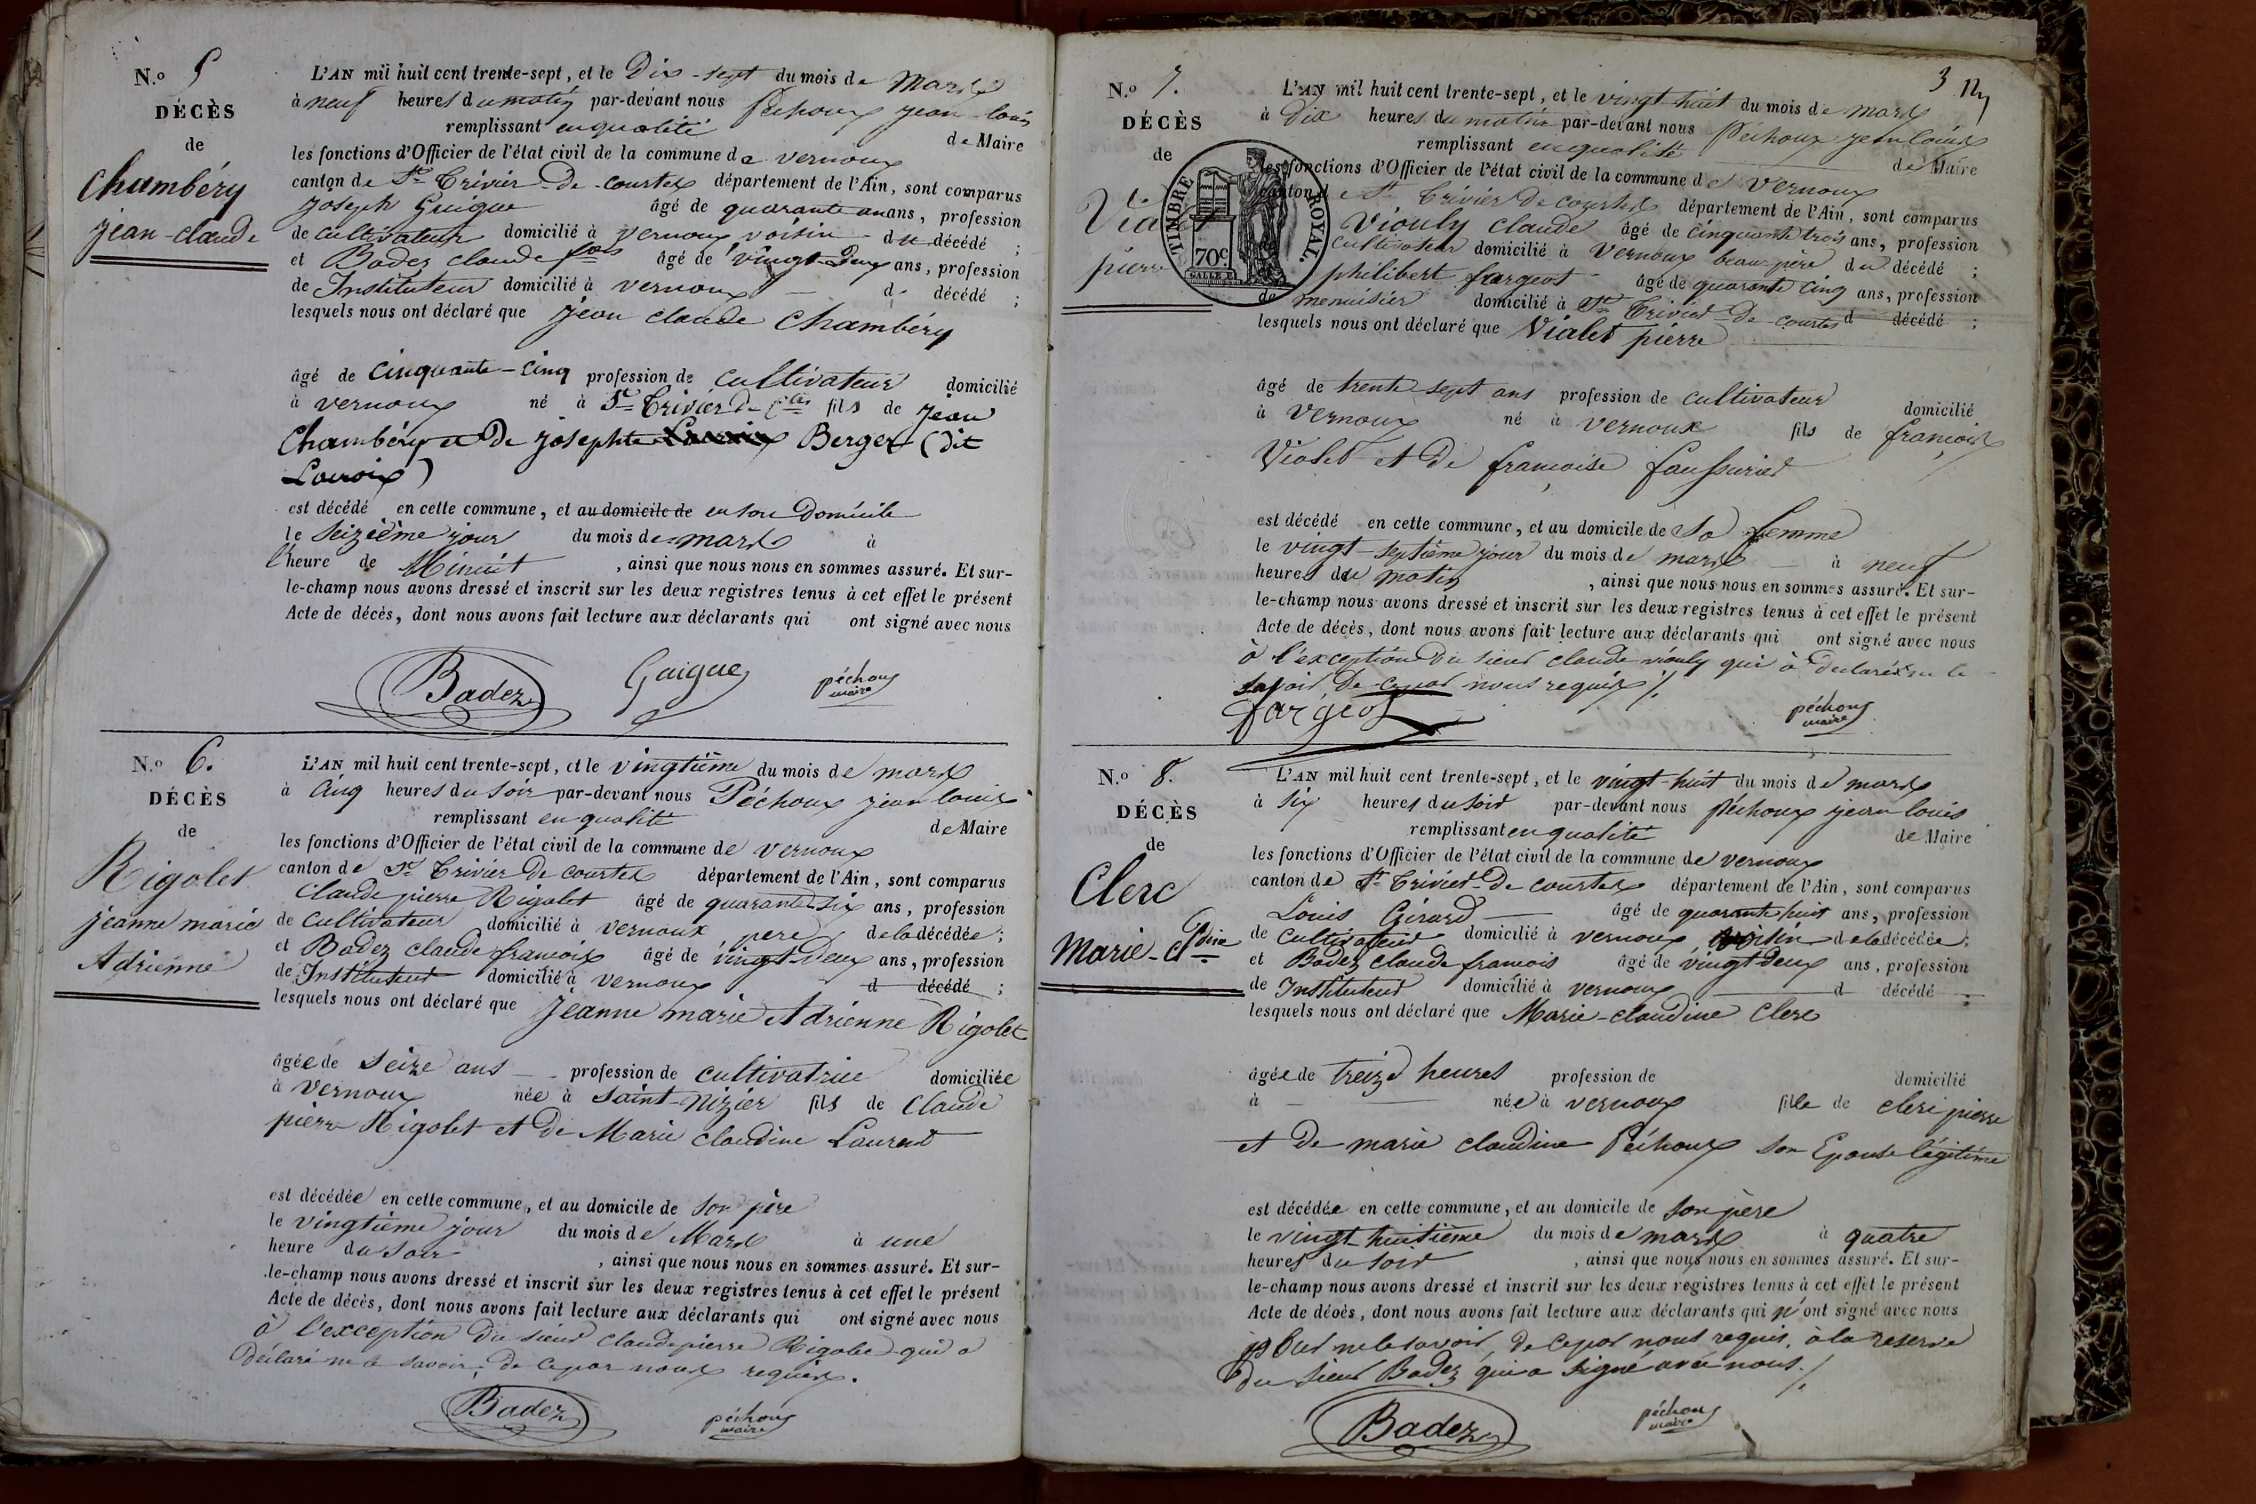 N.º 5
DÉCÈS
de
Chambéry
jean-claude
L'AN mil huit cent trente-sept, et le Dix-sept du mois de Mars
à neuf heures du matin par-devant nous Péchoux jean-louis
remplissant en qualité de Maire
les fonctions d'Officier de l'état civil de la commune de vernoux
canton de St Trivier-De-courtes département de l'Ain, sont comparus
joseph Guigue âgé de quarante ans, profession
de cultivateur domicilié à vernoux voisin du décédé ;
et Badez claude fois âgé de vingt-deux ans, profession
de Instituteur domicilié à vernoux d décédé ;
lesquels nous ont déclaré que jéan claude Chambéry
âgé de cinquante-cinq profession de cultivateur domicilié
à vernoux né à St Trivier De ctes fils de jean
Chambéry et De josephte Lacroix Berger (dit
Lacroix)
est décédé en cette commune, et au domicile de en son Domicile
le seizième jour du mois de mars à
l'heure de Minuit , ainsi que nous nous en sommes assuré. Et sur-
le-champ nous avons dressé et inscrit sur les deux registres tenus à cet effet le présent
Acte de décès, dont nous avons fait lecture aux déclarants qui ont signé avec nous
Badez Guigue péchoux
maire
N.º 6.
DÉCÈS
de
Rigolet
jeanne marie
Adrienne
L'AN mil huit cent trente-sept, et le vingtième du mois de mars
à cinq heures du soir par-devant nous Péchoux jean louis
remplissant en qualité de Maire
les fonctions d'Officier de l'état civil de la commune de vernoux
canton de St Trivier De courtes département de l'Ain, sont comparus
Claude pierre Rigolet âgé de quarante-six ans, profession
de cultivateur domicilié à vernoux pere de la décédée ;
et Badez claude françois âgé de vingt-deux ans, profession
de Instituteur domicilié à vernoux d décédé ;
lesquels nous ont déclaré que Jeanne marie Adrienne Rigolet
âgée de seize ans profession de cultivatrice domiciliée
à vernoux née à saint-Nizier fils de Claude
pierre Rigolet et De Marie claudine Laurent
est décédée en cette commune, et au domicile de son père
le vingtième jour du mois de Mars à une
heure du soir , ainsi que nous nous en sommes assuré. Et sur-
le-champ nous avons dressé et inscrit sur les deux registres tenus à cet effet le présent
Acte de décès, dont nous avons fait lecture aux déclarants qui ont signé avec nous
à l'exception Du sieur claude pierre Rigolet qui a
Déclaré ne le savoir, de ce par nous requis.
Badez péchoux
maire
3
N.º 7.
DÉCÈS
de
Vialet
pierre
TIMBRE ROYAL.
70c
L'AN mil huit cent trente-sept, et le vingt-huit du mois de mars
à Dix heures du matin par-devant nous Péchoux jean louis
remplissant en qualité de Maire
les fonctions d'Officier de l'état civil de la commune de vernoux
canton de St Trivier De courtes département de l'Ain, sont comparus
Viouly claude âgé de cinquante trois ans, profession
de cultivateur domicilié à Vernoux beau-père du décédé ;
philibert fargeot âgé de quarante cinq ans, profession
de menuisier domicilié à St Trivier De courtes d décédé ;
lesquels nous ont déclaré que Vialet pierre
âgé de trente sept ans profession de cultivateur domicilié
à Vernoux né à vernoux fils de françois
Vialet et De françoise faussurier
est décédé en cette commune, et au domicile de sa femme
le vingt-septième jour du mois de mars à neuf
heures du matin , ainsi que nous nous en sommes assuré. Et sur-
le-champ nous avons dressé et inscrit sur les deux registres tenus à cet effet le présent
Acte de décès, dont nous avons fait lecture aux déclarants qui ont signé avec nous
à l'exception Du sieur claude viouly qui à declaré ne le
savoir, De ce par nous requis ./.
fargeot péchoux
maire
N.º 8.
DÉCÈS
de
Clerc
Marie-Cldine
L'AN mil huit cent trente-sept, et le vingt-huit du mois de mars
à six heures du soir par-devant nous Péchoux jean louis
remplissant en qualité de Maire
les fonctions d'Officier de l'état civil de la commune de vernoux
canton de St Trivier-De courtes département de l'Ain, sont comparus
Louis Gérard âgé de quarante huit ans, profession
de cultivateur domicilié à vernoux voisin de la décédée ;
et Badez claude francois âgé de vingt deux ans, profession
de Instituteur domicilié à vernoux d décédé ;
lesquels nous ont déclaré que Marie-claudine Clerc
âgée de treize heures profession de domicilié
à née à vernoux fille de clerc pierre
et de marie claudine Péchoux son Epouse légitime
est décédée en cette commune, et au domicile de son père
le vingt-huitième du mois de mars à quatre
heures du soir , ainsi que nous nous en sommes assuré. Et sur-
le-champ nous avons dressé et inscrit sur les deux registres tenus à cet effet le présent
Acte de décès, dont nous avons fait lecture aux déclarants qui n'ont signé avec nous
pour ne le savoir, De ce par nous requis, à la reserve
Du sieur Badez qui a signé avec nous ./.
Badez péchoux
maire